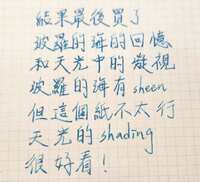 結果最後買了
波羅的海的回憶
和天光中的凝視
波羅的海有sheen
但這個紙不太行
天光的shading
很好看！